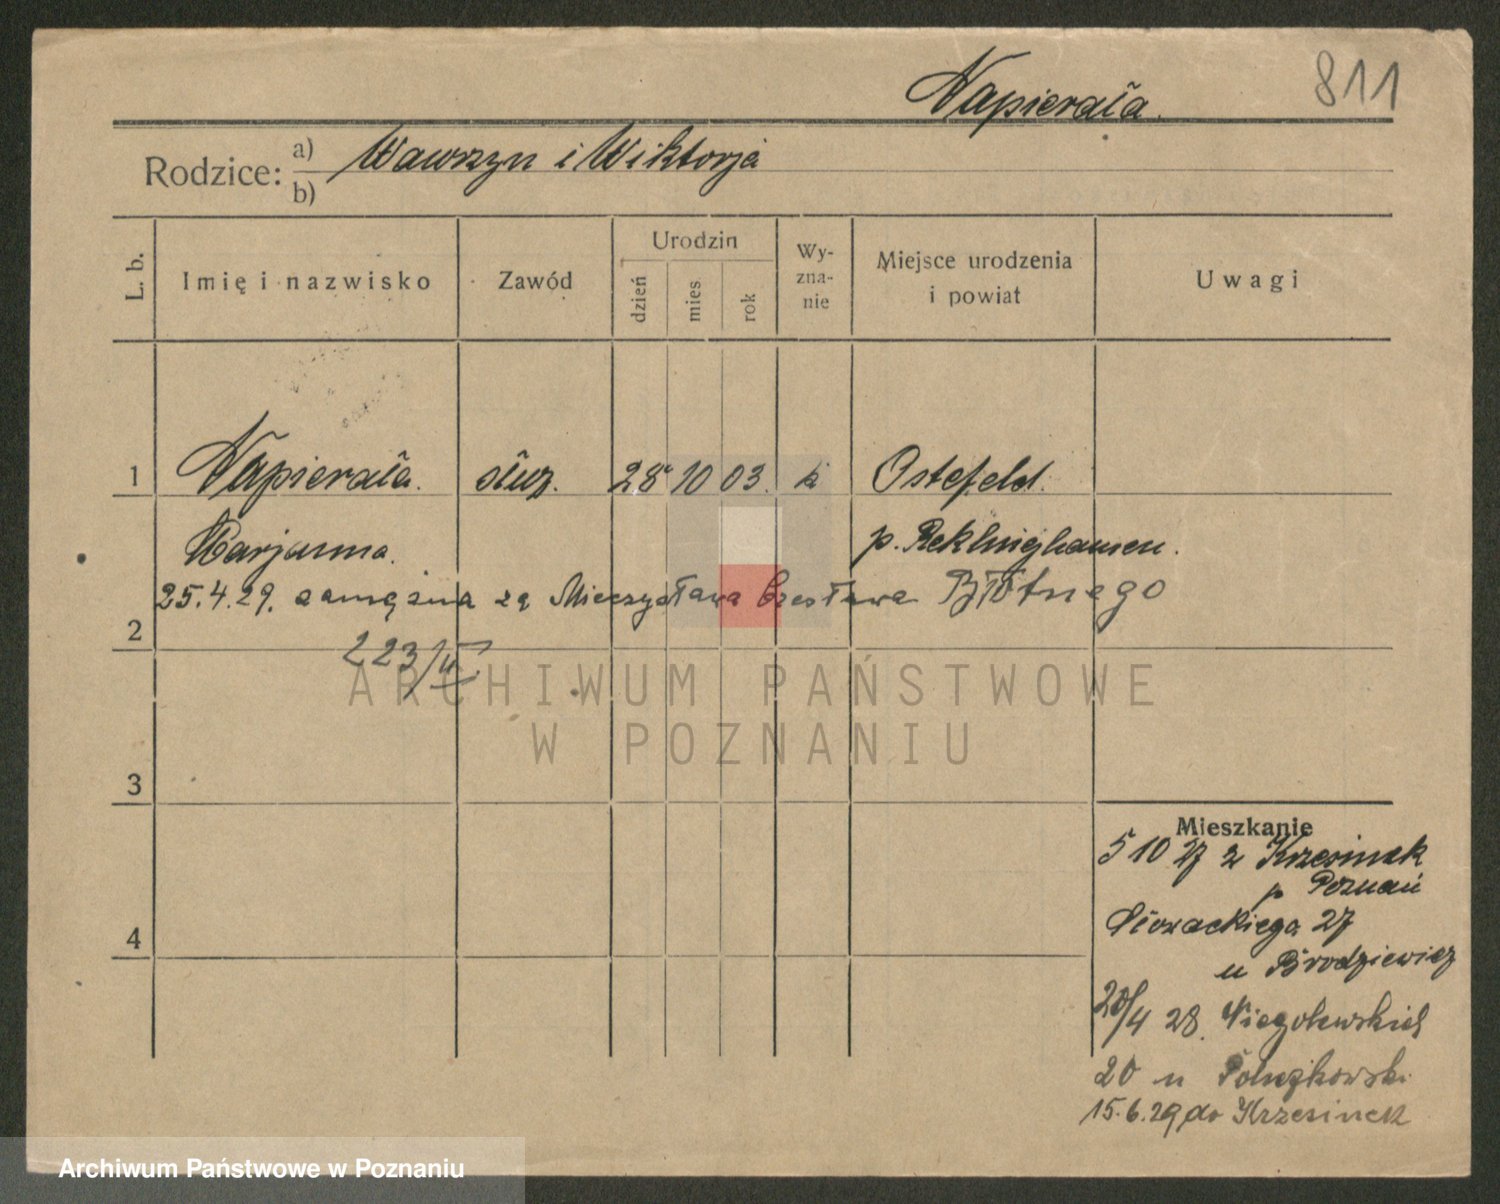 811
Napierała.
Rodzice: a) Wawrzyn i Wiktorja
b)
L. b.
Imię i nazwisko
Zawód
Urodzin
dzień
mies
rok
Wy-
zna-
nie
Miejsce urodzenia
i powiat
Uwagi
1 Napierała. służ. 28 10 03. k Ostefeld.
Marjanna. p. Reklinghausen.
25.4.29. zamężna za Mieczysława Czesława Błotnego
2
223/
3
4
Mieszkanie
5 10 27 z Krzesinek
p Poznań
27
u Brodziewicz
20/4 28. Niegolewskich
20 u
15.6.29 do Krzesinek
ARCHIWUM PAŃSTWOWE
W POZNANIU
Archiwum Państwowe w Poznaniu